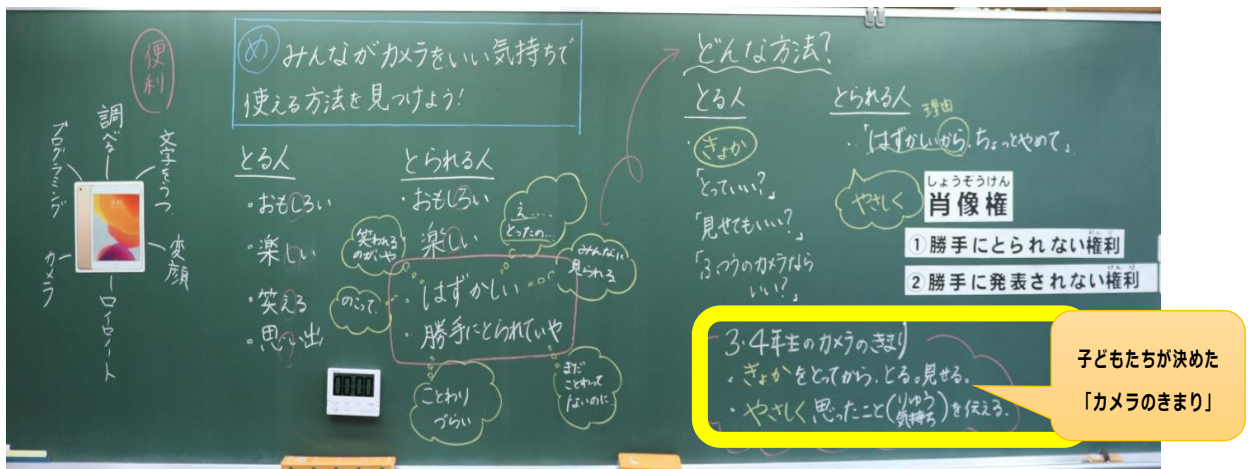 便利
調べる
文字をうつ
プログラミング
変顔
カメラ
ロイロノート
め みんながカメラをいい気持ちで
使える方法を見つけよう!
とる人
・おもしろい
・楽しい
・笑える
・思い出
とられる人
・おもしろい
楽しい
・はずかしい
・勝手にとられていや
笑われる
のがいや
え……
とったの…
みんなに
見られる
のこって
ことわり
づらい
まだ
ことわって
ないのに
どんな方法?
とる人
・きょか
「とっていい?」
「見せてもいい?」
「ふつうのカメラなら
いい?」
とられる人
理由
・「はずかしいから、ちょっとやめて」
やさしく
しょうぞうけん
肖像権
けんり
①勝手にとられない権利
けんり
②勝手に発表されない権利
3・4年生のカメラのきまり
・きょかをとってから、とる。見せる。
・やさしく思ったこと(りゅう
気持ち)を伝える。
子どもたちが決めた
「カメラのきまり」